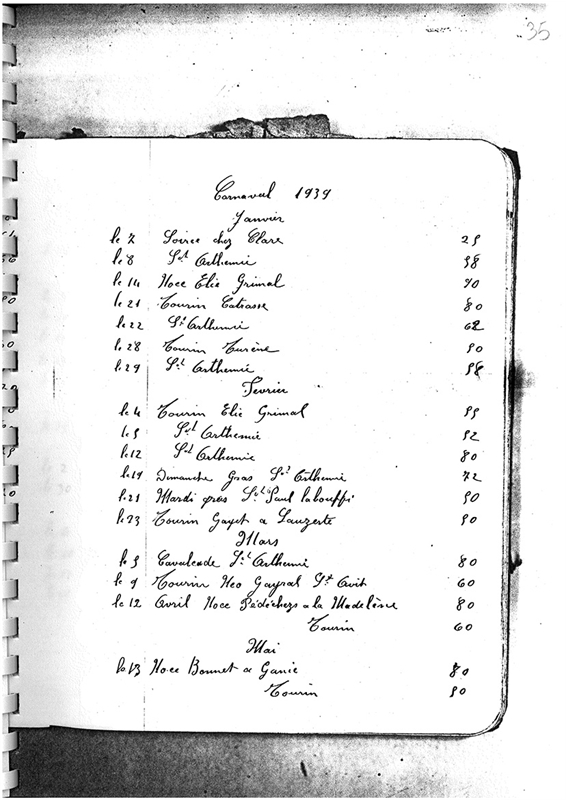 35
Carnaval 1939
Janvier
le 7 Soirée chez Clare 25
le 8 St Arthemie 58
le 14 Noce Elie Grimal 70
le 21 Tourin Catrasse 80
le 22 St Arthemie 62
le 28 Tourin Turène 50
le 29 St Arthemie 58
Fevrier
le 4 Tourin Elie Grimal 55
le 5 St Arthemie 52
le 12 St Arthemie 80
le 19 Dimanche Gras St Arthemie 72
le 21 Mardi gras St Paul labouffie 50
le 23 Tourin Gayet a Lauzerte 50
Mars
le 5 Cavalcade St Arthemie 80
le 9 Tourin Neo Gayral St Avit 60
le 12 Avril Noce Pédéchers a la Madelène 80
Tourin 60
Mai
le 13 Noce Bonnet a Ganic 80
Tourin 50